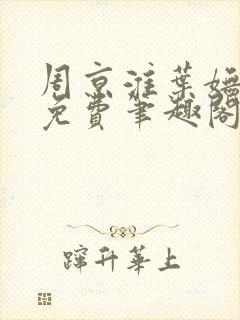 周京淮叶嫵
免费笔趣阁
蹿升华上